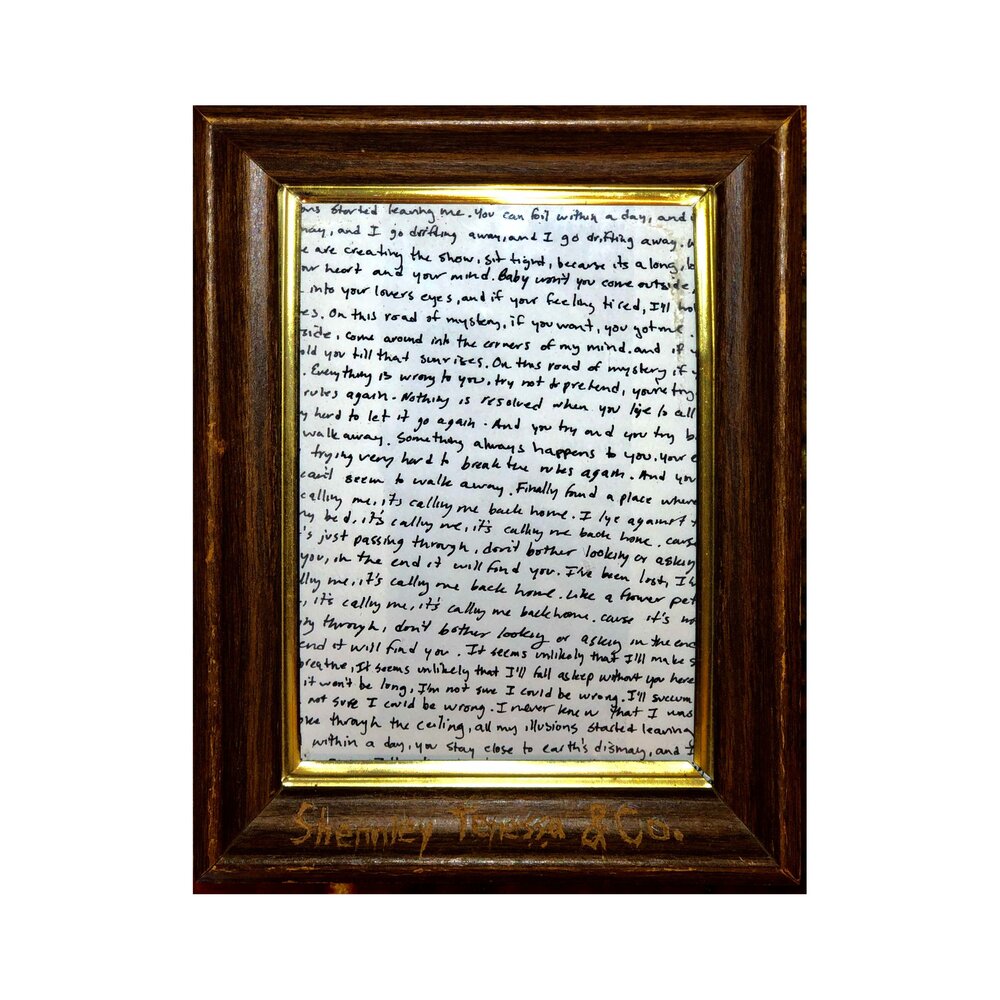 ons started leaving me. You can foil within a day, and
may, and I go drifting away, and I go drifting away.
e are creating the show, sit tight, because its a long,
our heart and your mind. Baby won't you come outside
into your lovers eyes, and if your feeling tired, I'll
es. On this road of mystery, if you want, you got me
side, come around into the corners of my mind. and if y
old you till that sunrises. On this road of mystery if y
. Everything is wrong to you, try not to pretend, you're try
rules again. Nothing is resolved when you lye to all
y hard to let it go again. And you try and you try b
walk away. Something always happens to you. your e
trying very hard to break the rules again. And you
can't seem to walk away. Finally found a place where
calling me, it's calling me back home. I lye against t
my bed, it's calling me, it's calling me back home. cause
's just passing through, don't bother looking or asking
you, in the end it will find you. I've been lost, I h
lling me, it's calling me back home. Like a flower pet
, it's calling me, it's calling me back home. cause it's no
ing through, don't bother looking or asking in the end
end it will find you. It seems unlikely that I'll make s
breathe, It seems unlikely that I'll fall asleep without you here
it won't be long, I'm not sure I could be wrong. I'll succum
not sure I could be wrong. I never knew that I was
oke through the ceiling, all my illusions started leaving
within a day, you stay close to earth's dismay, and I
Shemmey Teressa & Co.